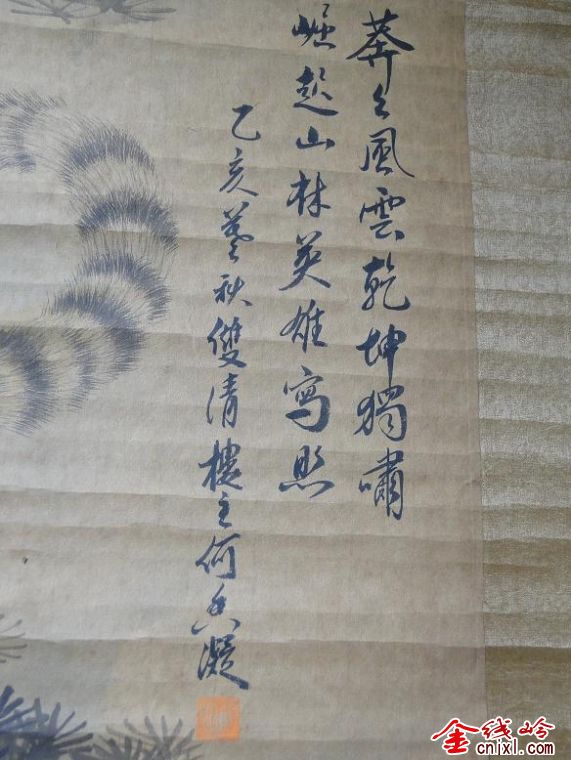 莽々風雲乾坤獨嘯
崛起山林英雄寫照
乙亥暮秋雙清樓主何香凝
金线岭
cnlxl.com